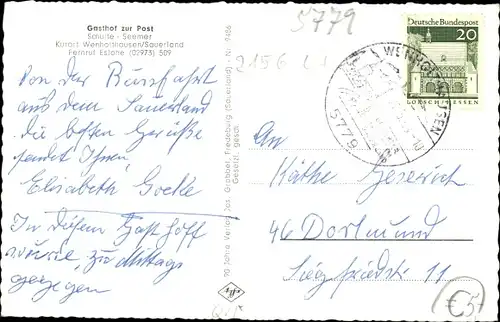 Gasthof zur Post
Schulte - Seemer
Kurort Wenholthausen/Sauerland
Fernruf Eslohe (02973) 509
5779
2156
Von der Busfahrt
aus dem Sauerland
die besten Grüße
sendet Ihnen
Elisabeth Goeke
In diesem Gasthoff
wurde zu Mittags
gegegen
90 Jahre Verlag Jos. Grobbel, Fredeburg (Sauerland) - Nr. 9486
Gesetzl. gesch.
Deutsche Bundespost
20
LORSCH/HESSEN
WENHOLTHAUSEN
5779
An
Käthe Jeserich
46 Dortmund
Siegfriedstr. 11
€5